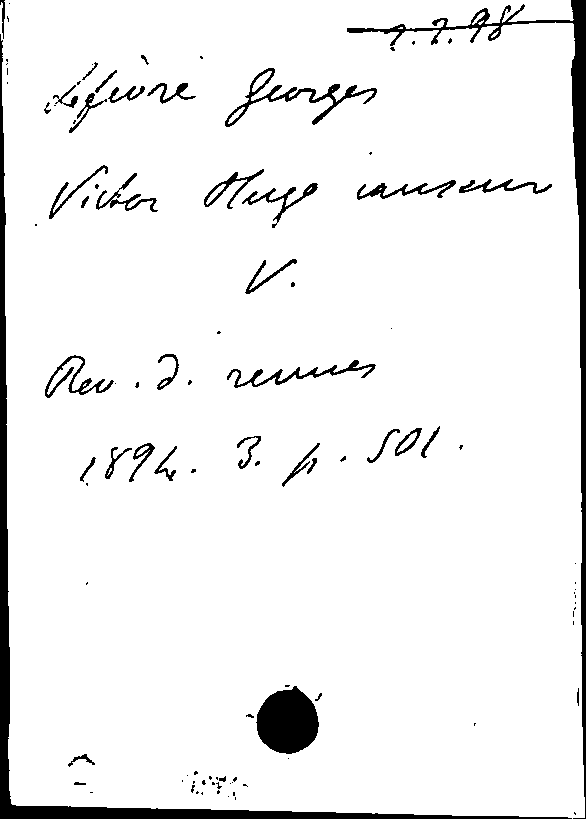 2.2.98
Lefèvre Georges
Victor Hugo causeur
V.
Rev. d. revues
1894. 3. p. 501.